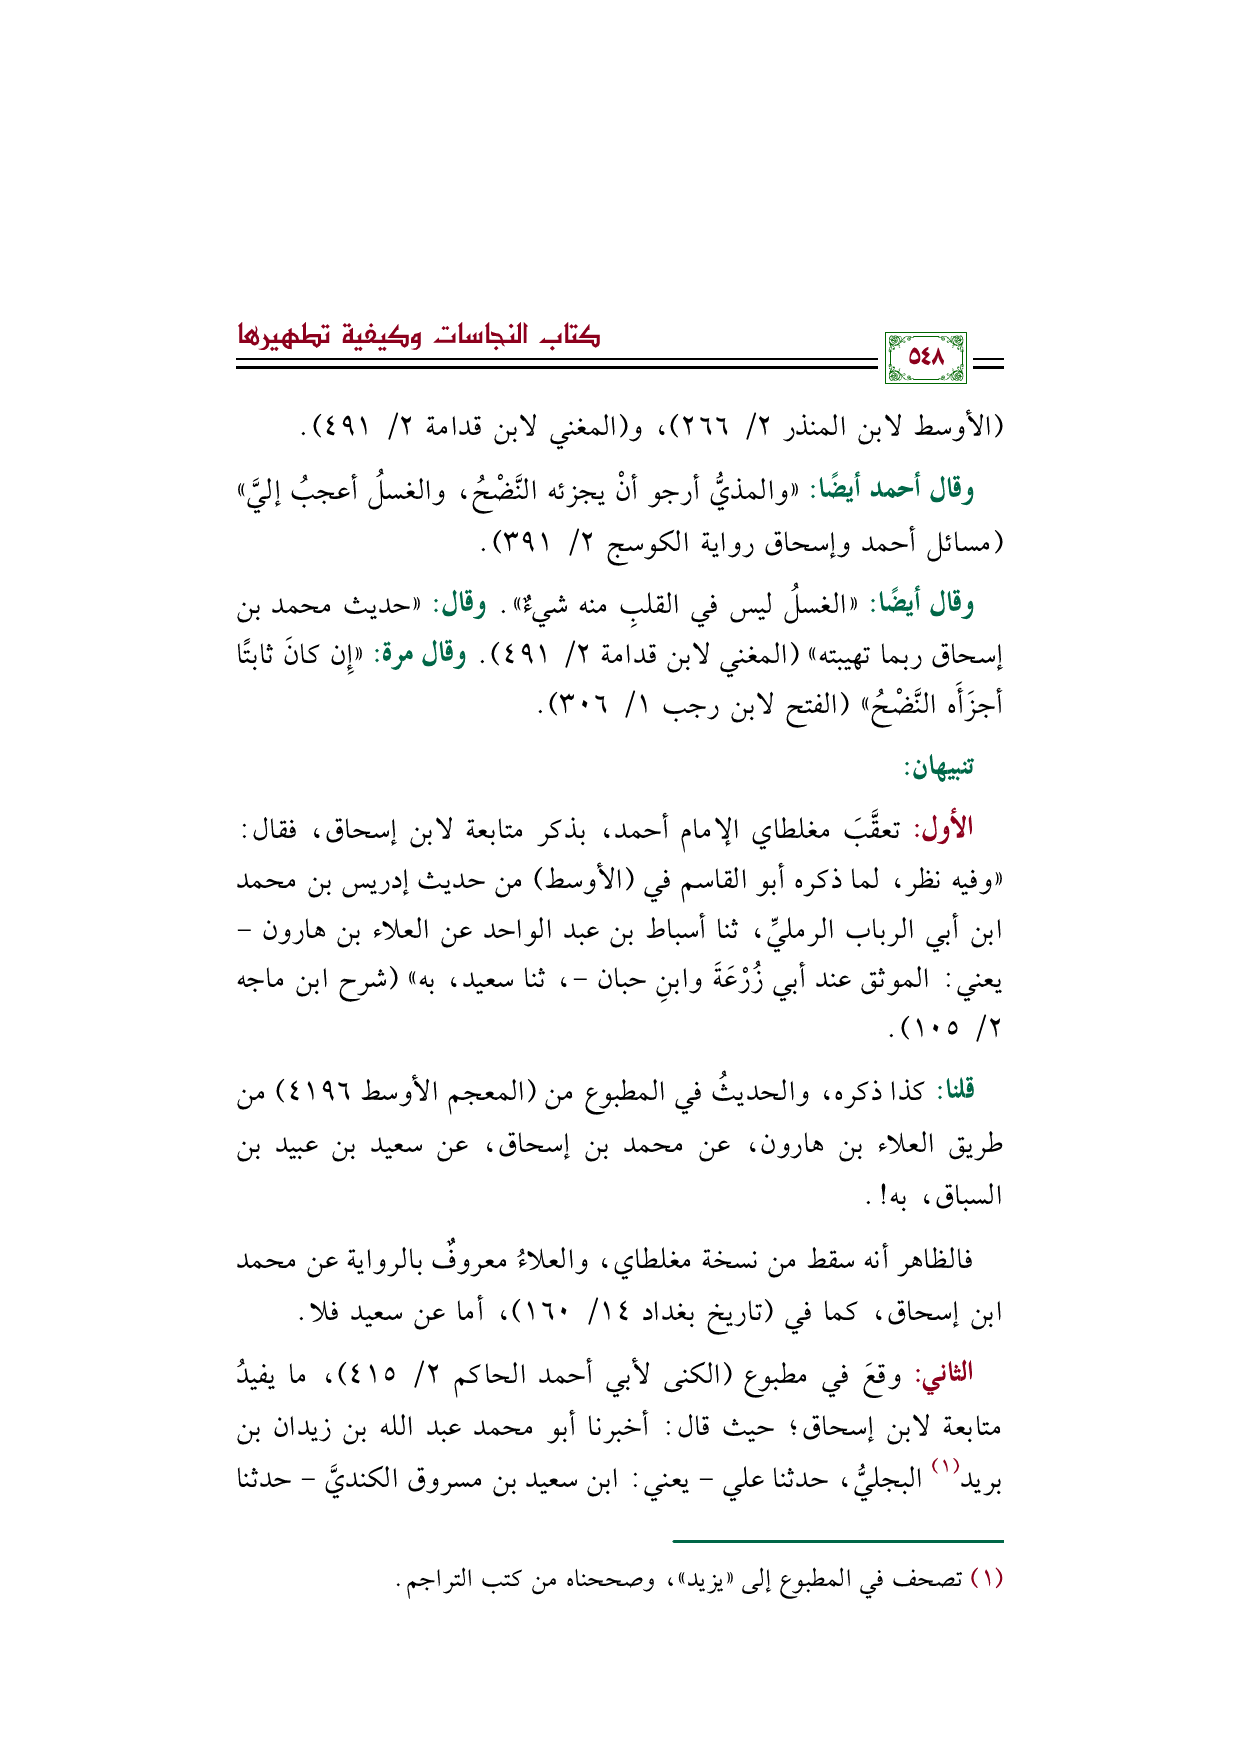 كتاب النجاسات وكيفية تطهيرها
٥٤٨
(الأوسط لابن المنذر ٢/ ٢٦٦)، و(المغني لابن قدامة ٢/ ٤٩١).
وقال أحمد أيضًا: «والمذيُّ أرجو أنْ يجزئه النَّضْحُ، والغسلُ أعجبُ إليَّ»
(مسائل أحمد وإسحاق رواية الكوسج ٢/ ٣٩١).
وقال أيضًا: «الغسلُ ليس في القلبِ منه شيءٌ». وقال: «حديث محمد بن
إسحاق ربما تهيبته» (المغني لابن قدامة ٢/ ٤٩١). وقال مرة: «إِن كانَ ثابتًا
أجزَأَه النَّضْحُ» (الفتح لابن رجب ١/ ٣٠٦).
تنبيهان:
الأول: تعقَّبَ مغلطاي الإمام أحمد، بذكر متابعة لابن إسحاق، فقال:
«وفيه نظر، لما ذكره أبو القاسم في (الأوسط) من حديث إدريس بن محمد
ابن أبي الرباب الرمليِّ، ثنا أسباط بن عبد الواحد عن العلاء بن هارون -
يعني: الموثق عند أبي زُرْعَةَ وابنِ حبان -، ثنا سعيد، به» (شرح ابن ماجه
٢/ ١٠٥).
قلنا: كذا ذكره، والحديثُ في المطبوع من (المعجم الأوسط ٤١٩٦) من
طريق العلاء بن هارون، عن محمد بن إسحاق، عن سعيد بن عبيد بن
السباق، به!.
فالظاهر أنه سقط من نسخة مغلطاي، والعلاءُ معروفٌ بالرواية عن محمد
ابن إسحاق، كما في (تاريخ بغداد ١٤/ ١٦٠)، أما عن سعيد فلا.
الثاني: وقعَ في مطبوع (الكنى لأبي أحمد الحاكم ٢/ ٤١٥)، ما يفيدُ
متابعة لابن إسحاق؛ حيث قال: أخبرنا أبو محمد عبد الله بن زيدان بن
بريد(١) البجليُّ، حدثنا علي - يعني: ابن سعيد بن مسروق الكنديَّ - حدثنا
(١) تصحف في المطبوع إلى «يزيد»، وصححناه من كتب التراجم.